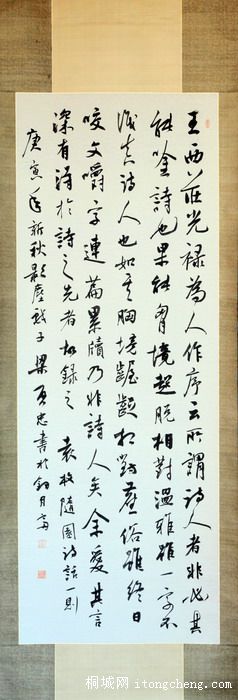 王西莊光禄為人作序云所謂詩人者非必其
能吟詩也果能胸境超脱相對溫雅雖一字不
識真詩人也如其胸境齷齪相對塵俗雖終日
咬文嚼字連篇累牘乃非詩人矣余愛其言
深有得於詩之先者故錄之 袁枚隨園詩話一則
庚寅年新秋影塵子梁忠書於月
桐城网 itongcheng.com